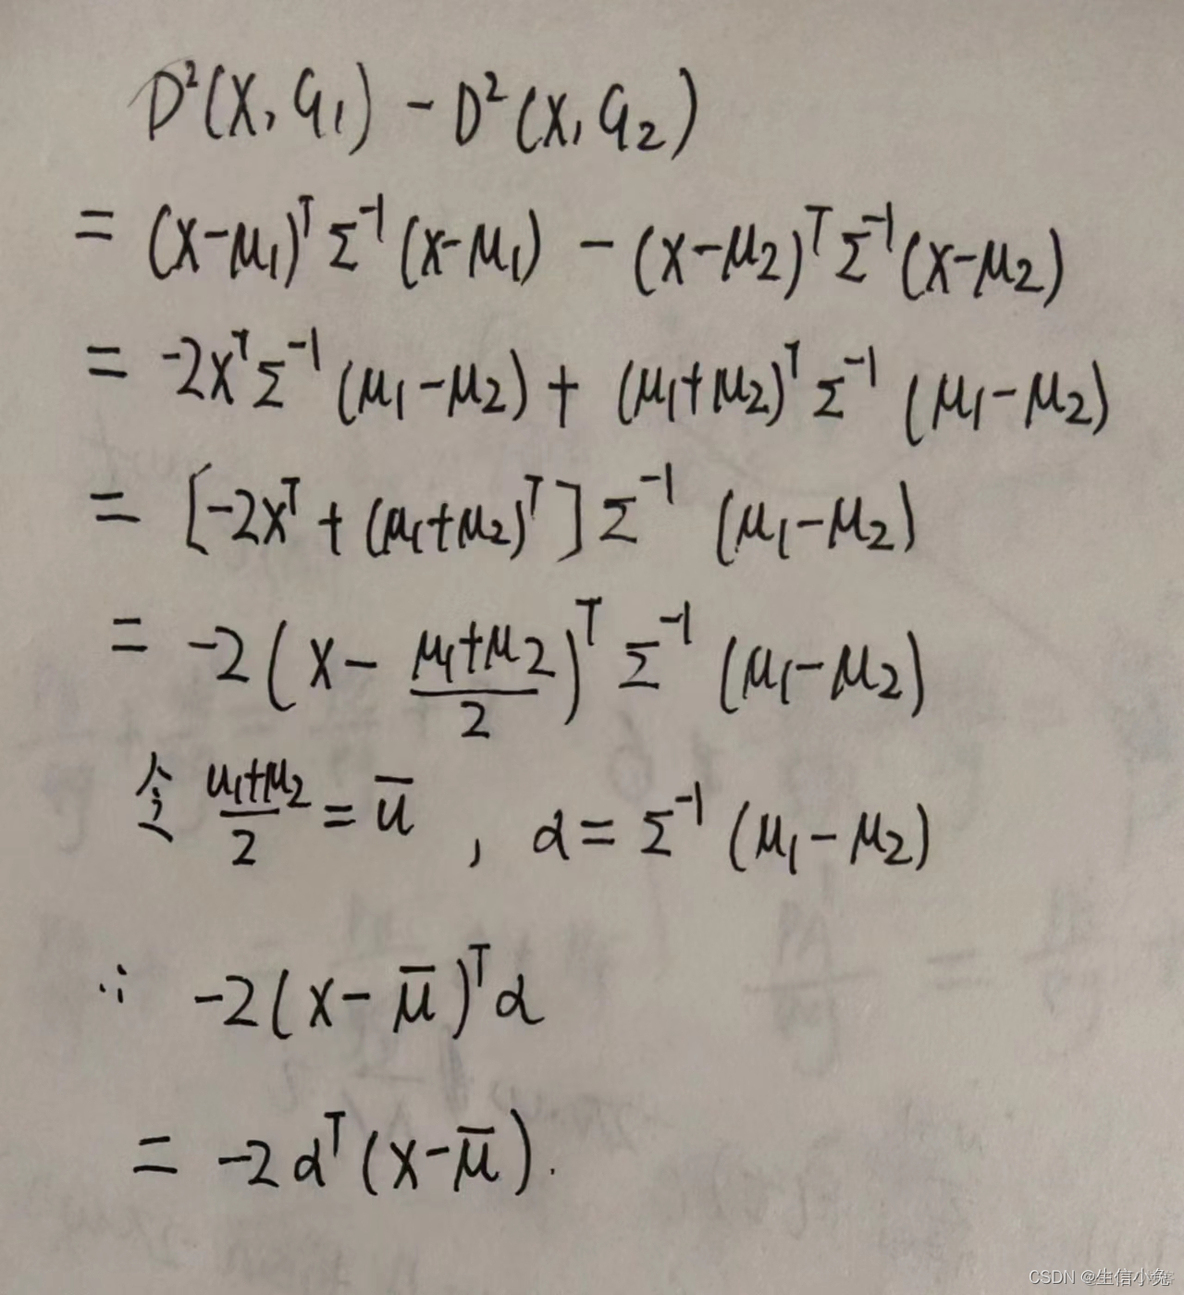 D²(X, G₁) - D²(X, G₂)
= (x-μ₁)ᵀ Σ⁻¹ (x-μ₁) - (x-μ₂)ᵀ Σ⁻¹ (x-μ₂)
= -2xᵀ Σ⁻¹ (μ₁-μ₂) + (μ₁+μ₂)ᵀ Σ⁻¹ (μ₁-μ₂)
= [-2xᵀ + (μ₁+μ₂)ᵀ] Σ⁻¹ (μ₁-μ₂)
= -2(x - (μ₁+μ₂)/2)ᵀ Σ⁻¹ (μ₁-μ₂)
令 (u₁+μ₂)/2 = ū , α = Σ⁻¹ (μ₁-μ₂)
∴ -2(x-μ̄)ᵀα
= -2αᵀ(x-μ̄).
CSDN @生信小兔